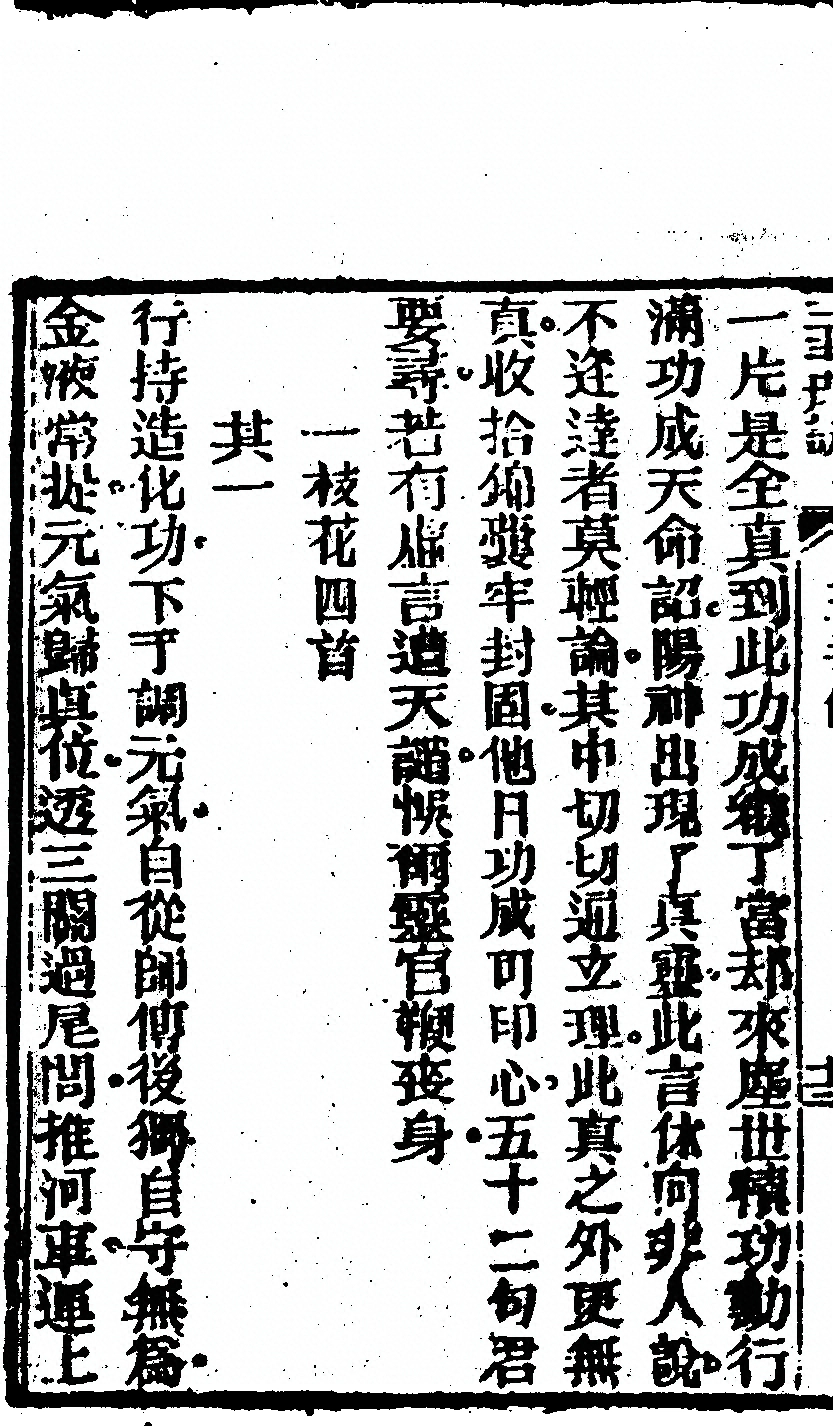 一片是全真到此功成纔了當却來塵世積功勤行
滿功成天命詔陽神出現了真靈此言休向非人說
不迕達者莫輕論其中切切通立理此真之外更無
真收拾錦囊牢封固他日功成可印心五十二句君
要尋若有虛言遭天譴恨爾靈官鞭喪身
一枝花四首
其一
行持造化功下手調元氣自從師傅後獨自守無爲
金液常提元氣歸真位透三關過尾閭推河車運上